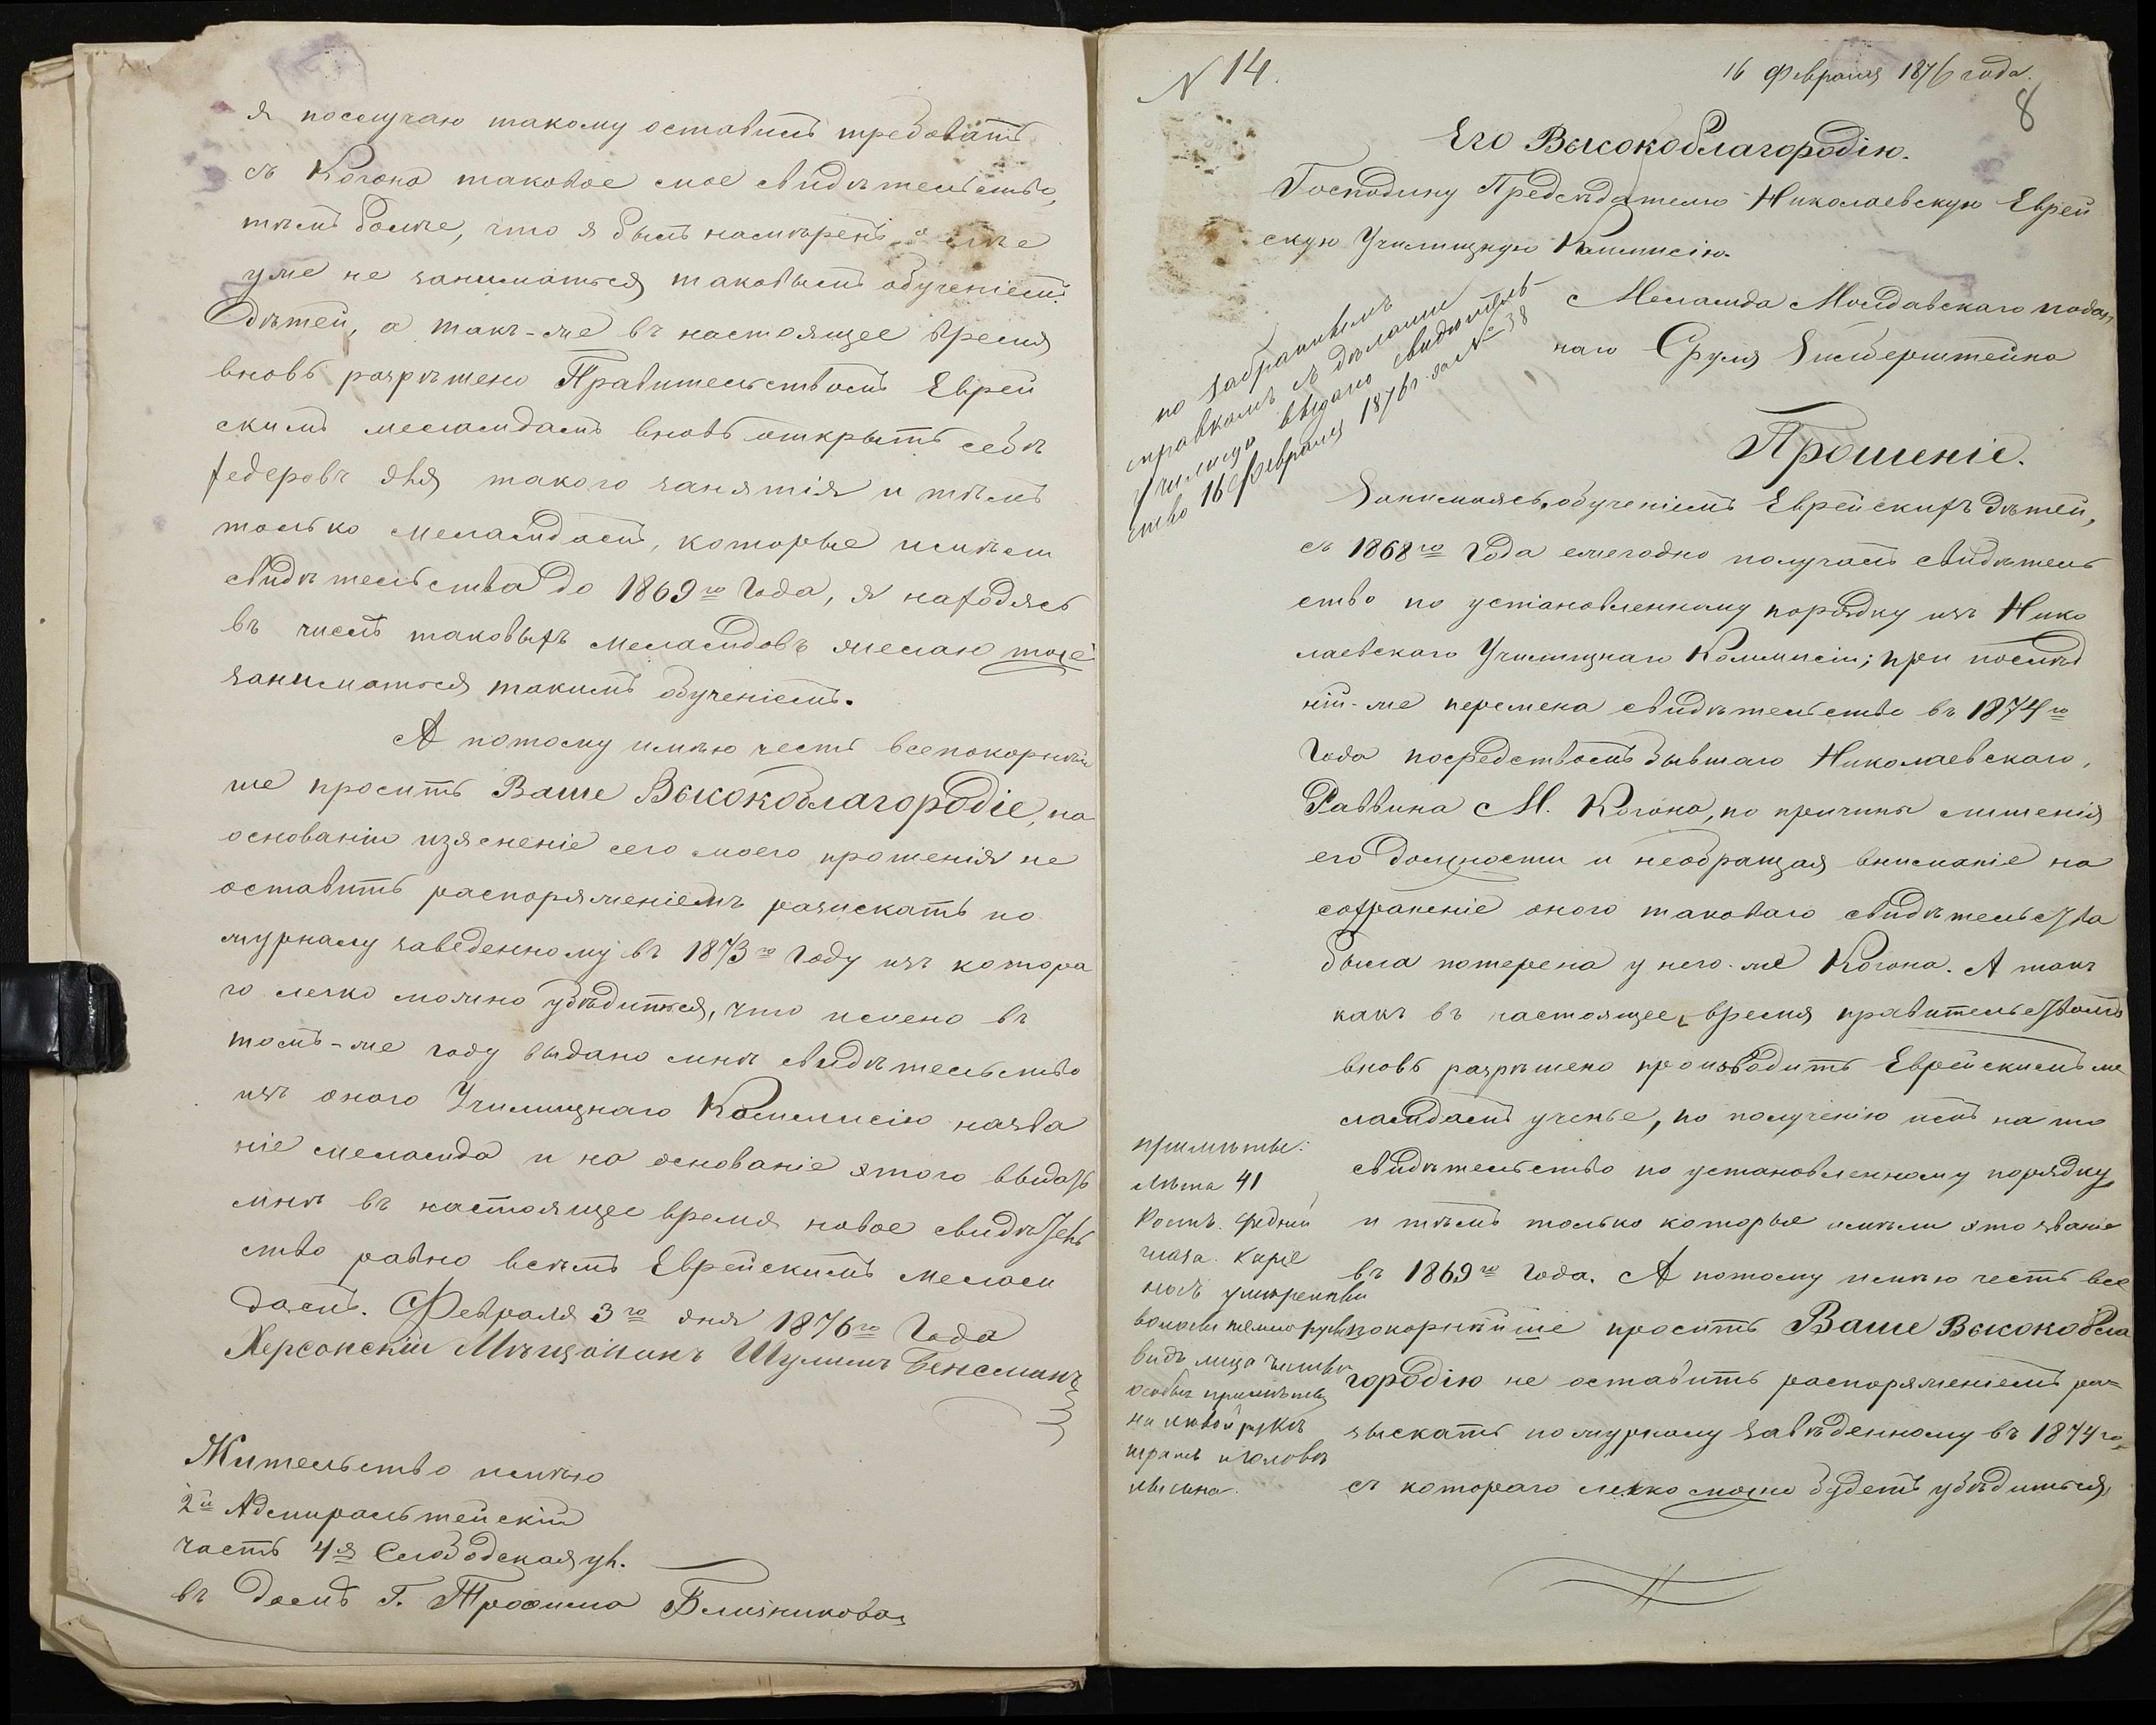 я послучаю такому оставилъ требовать
съ Когона таковое мое свидѣтельство,
тѣмъ болѣе, что я былъ намѣренъ
уже не заниматься таковымъ обученіемъ
дѣтей, а такъ-же въ настоящее время
вновь разрѣшено Правительствомъ Еврей
скимъ меламдамъ вновь открыть себѣ
хедеровъ для такого занятія и тѣмъ
только меламдамъ, которые имѣли
свидѣтельства до 1869го Года, я находясь
въ числѣ таковыхъ меламдовъ желаю тоже
заниматься такимъ обученіемъ.
А потому имѣю честь всепокорнѣй
ше просить Ваше Высокоблагородіе, на
основаніи изясненіе сего моего прошенія не
оставить распоряженіемъ разискать по
журналу заведенному въ 1873го Году изъ котора
го легко можно убѣдиться, что имено въ
томъ-же году выдано мнѣ свидѣтельство
изъ оного Училищнаго Коммисію назва
ніе меламда и на основаніе этого выдать
мнѣ въ настоящее время новое свидѣтель
ство равно всѣмъ Еврейскимъ мелам
дамъ. Февраля 3го дня 1876го Года
Херсонскій Мѣщанинъ Шулимъ Бенсманъ
Жительство имѣю
2й Адмиральтейскій
часть 4я Слободская ул.
въ домѣ Г. Трофима Близникова
N 14.
16 Февраля 1876 года.
8
Его Высокоблагородію.
Господину Предсѣдателю Николаевскую Еврей
скую Училищную Коммисію.
Меламда Молдавскаго подан,
наго Сруля Зильберштейна
по забраннымъ
справкамъ съ дѣлами
училища выдано свидѣтель
ство 16 февраля 1876 г. за № 38
Прошеніе.
Занимаясь обученіемъ Еврейскихъ дѣтей,
съ 1868го Года ежегодно получалъ свидѣтель
ство по установленному порядку изъ Нико
лаевскаго Училищнаго Коммисіи; при послѣд
ній-же перемена свидѣтельство въ 1874го
Года посредствомъ бывшаго Николаевскаго,
Раввина М. Когона, по причины лишенія
его должности и необращая вниманіе на
сохраненіе оного таковаго свидѣтельства
была потерена у него-же Когона. А такъ
какъ въ настоящее время правительствомъ
вновь разрѣшено производить Еврейскимъ ме
ламдамъ ученье, по полученію имъ на то
свидѣтельство по установленному порядку
и тѣмъ только которые имѣли это званіе
въ 1869го Года. А потому имѣю честь все
покорнѣйше просить Ваше Высокобла
городію не оставить распоряженіемъ ра-
зыскать по журналу завѣденному въ 1874го
съ котораго легко можно будетъ убѣдиться,
примѣты:
Лѣта 41
Ростъ. средній
глаза. каріе
носъ умѣренный
волосы темнорусы
видъ лица чистый
особыя примѣты
на лѣвой рукѣ
шрамъ и голова
лысына.